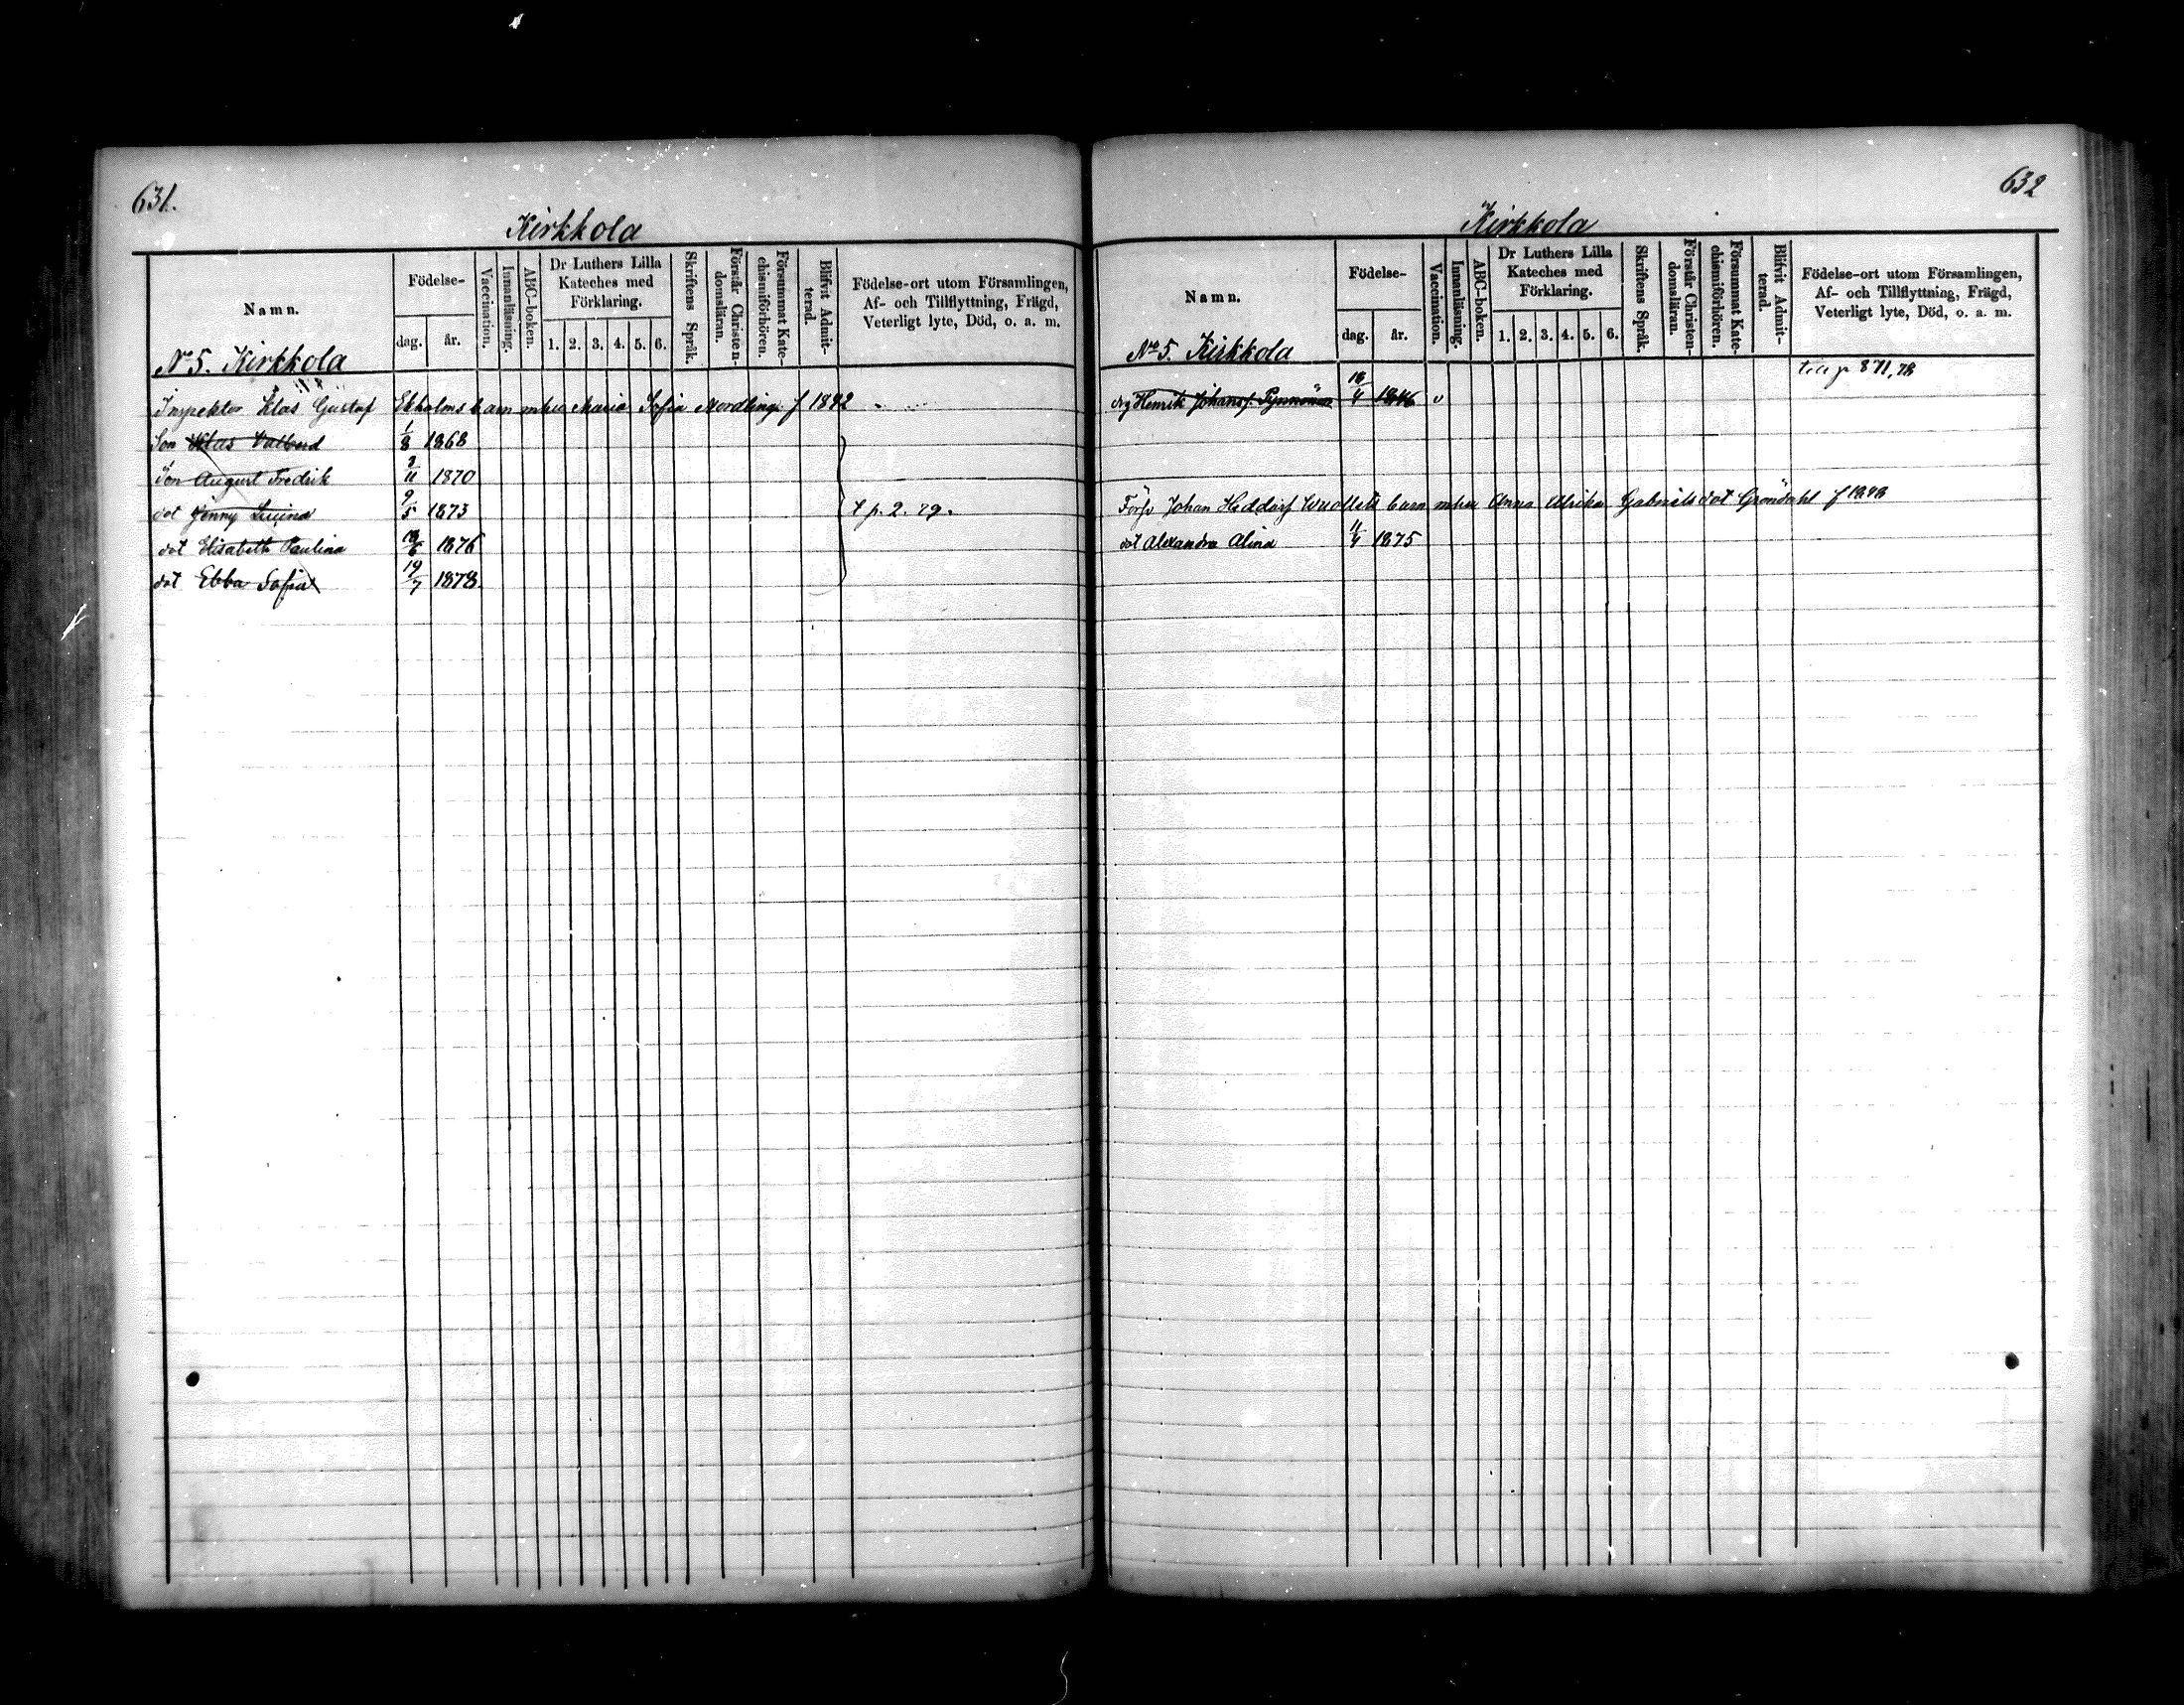 631.
Kirkkola
Namn.
Födelse-
dag.
år.
Vaccination.
Innanläsning.
ABC-boken.
Dr Luthers Lilla
Kateches med
Förklaring.
1. 2. 3. 4. 5. 6.
Skriftens Språk.
Förstår Christen-
domsläran.
Försummat Kate-
chismiförhören.
Blifvit Admit-
terad.
Födelse-ort utom Församlingen,
Af- och Tillflyttning, Frägd,
Veterligt lyte, Död, o. a. m.
No 5. Kirkkola
Inspektor Klas Gustaf Ekholms barn m hu Maria Sofia Nordling f 1842
Son Klas 1/8 1868
Son August Fredrik 11 1870
dot Jenny 9/5 1873 t p. 2. 79.
dot Elisabeth Paulina 18/6 1876
dot Ebba Sofia 19/7 1878.
632
Kirkkola
Namn.
Födelse-
dag.
år.
Vaccination.
Innanläsning.
ABC-boken.
Dr Luthers Lilla
Kateches med
Förklaring.
1. 2. 3. 4. 5. 6.
Skriftens Språk.
Förstår Christen-
domsläran.
Försummat Kate-
chismiförhören.
Blifvit Admit-
terad.
Födelse-ort utom Församlingen,
Af- och Tillflyttning, Frägd,
Veterligt lyte, Död, o. a. m.
No 5. Kirkkola
till p 871, 78
drg Henrik Johans s. 18/4 1846 v
Johan barn m hu Anna Ulrika Gabrielsdot Gröndahl f 1848
dot Alexandra Alina 11/4 1875